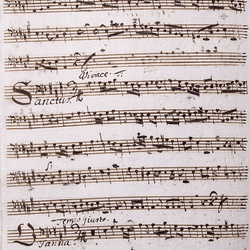 Vivace.
Sanctus.
Tempo giusto.
Osanna.